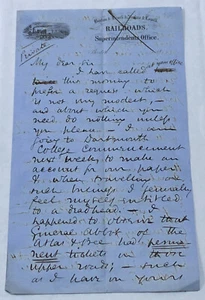 RAILROADS.
Superintendent's Office.
Private
My dear Sir
I have called
this morning to
prefer a request which
is not very modest,
and about which you
need do nothing unless
you please. I am
going to Dartmouth
College commencement
next week, to make an
account for our paper.
When travelling on
such business I generally
feel myself entitled
to a deadhead. I
happened to observe that
General Abbot of the
Atlas & Bee had perma
nent tickets on the
upper roads; – such
as I have on yours